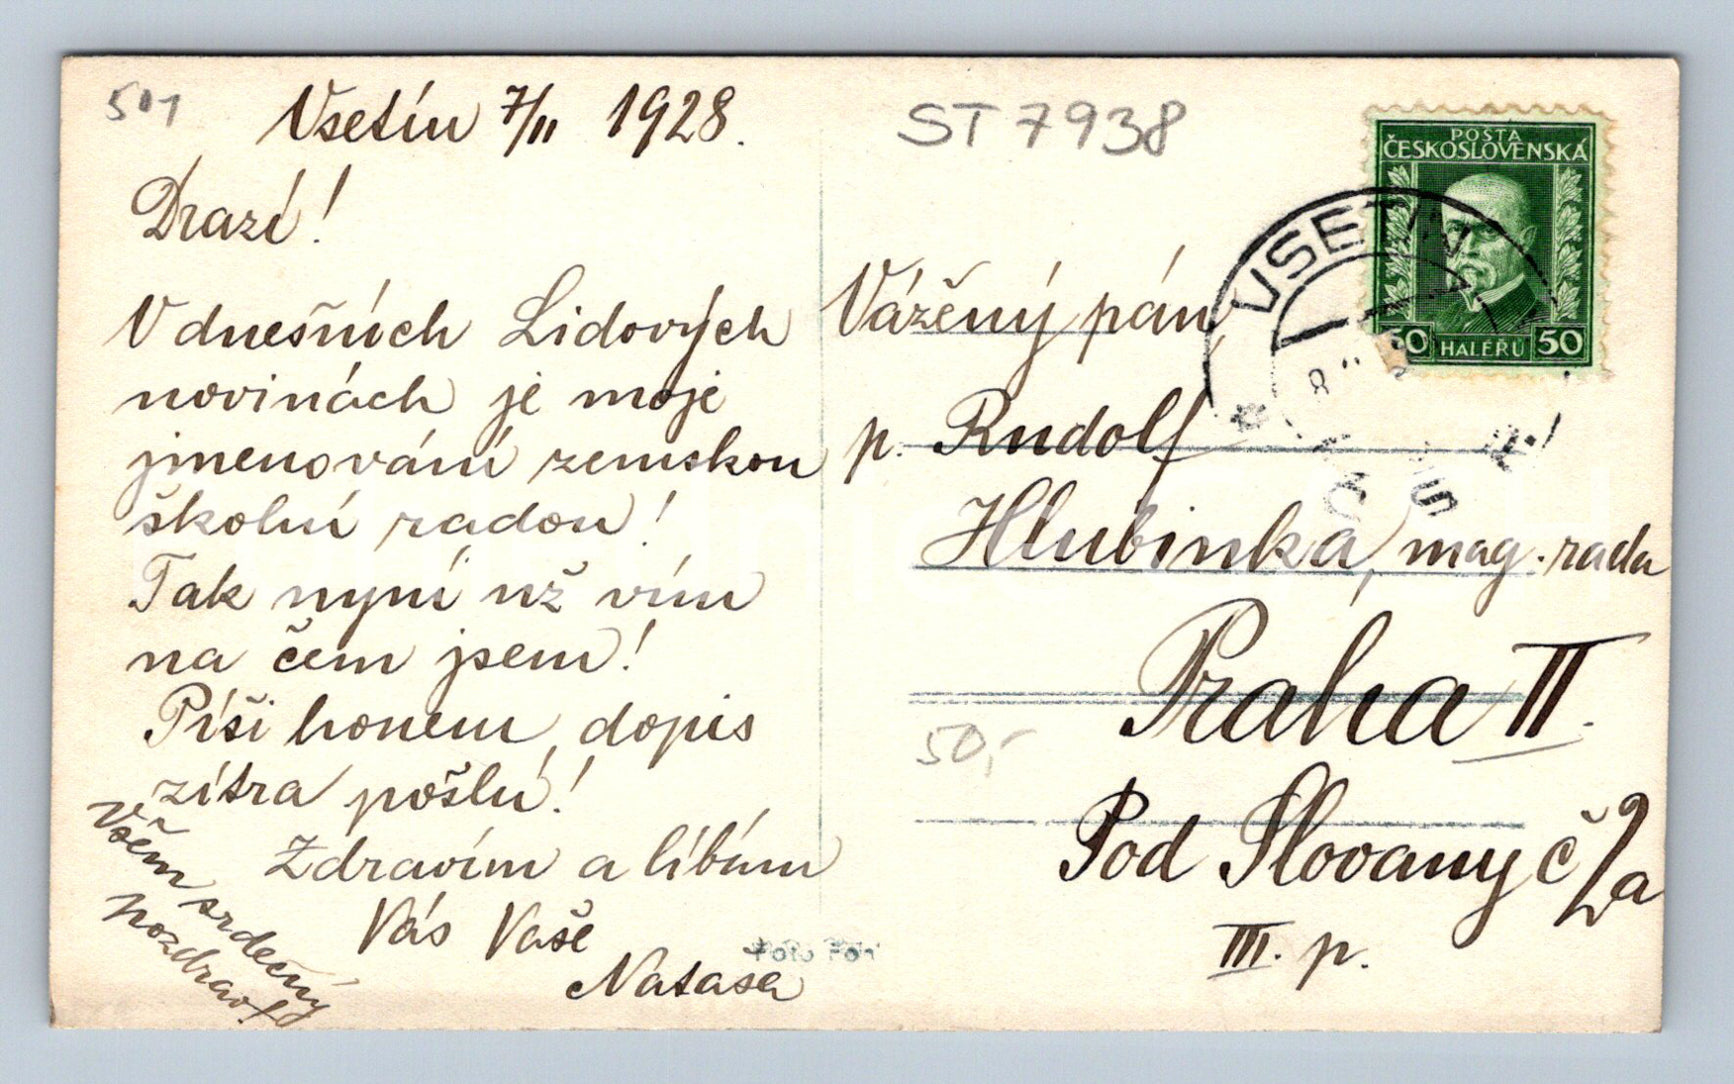 501
Vsetín 7/II 1928.
Drazí!
V dnešních Lidových
novinách je moje
jmenování zemskou
školní radou!
Tak nyní už vím
na čem jsem!
Píši honem, dopis
zítra pošlu!
Zdravím a líbám
Vás Vaše
Nataša
Všem srdečný
pozdrav!
ST 7938
POŠTA
ČESKOSLOVENSKÁ
50 HALÉŘŮ 50
VSETIN
Vážěný pán
p. Rudolf
Hlubinka, mag. rada
Praha II.
50,-
Pod Slovany č 2a
III. p.
Foto Fon